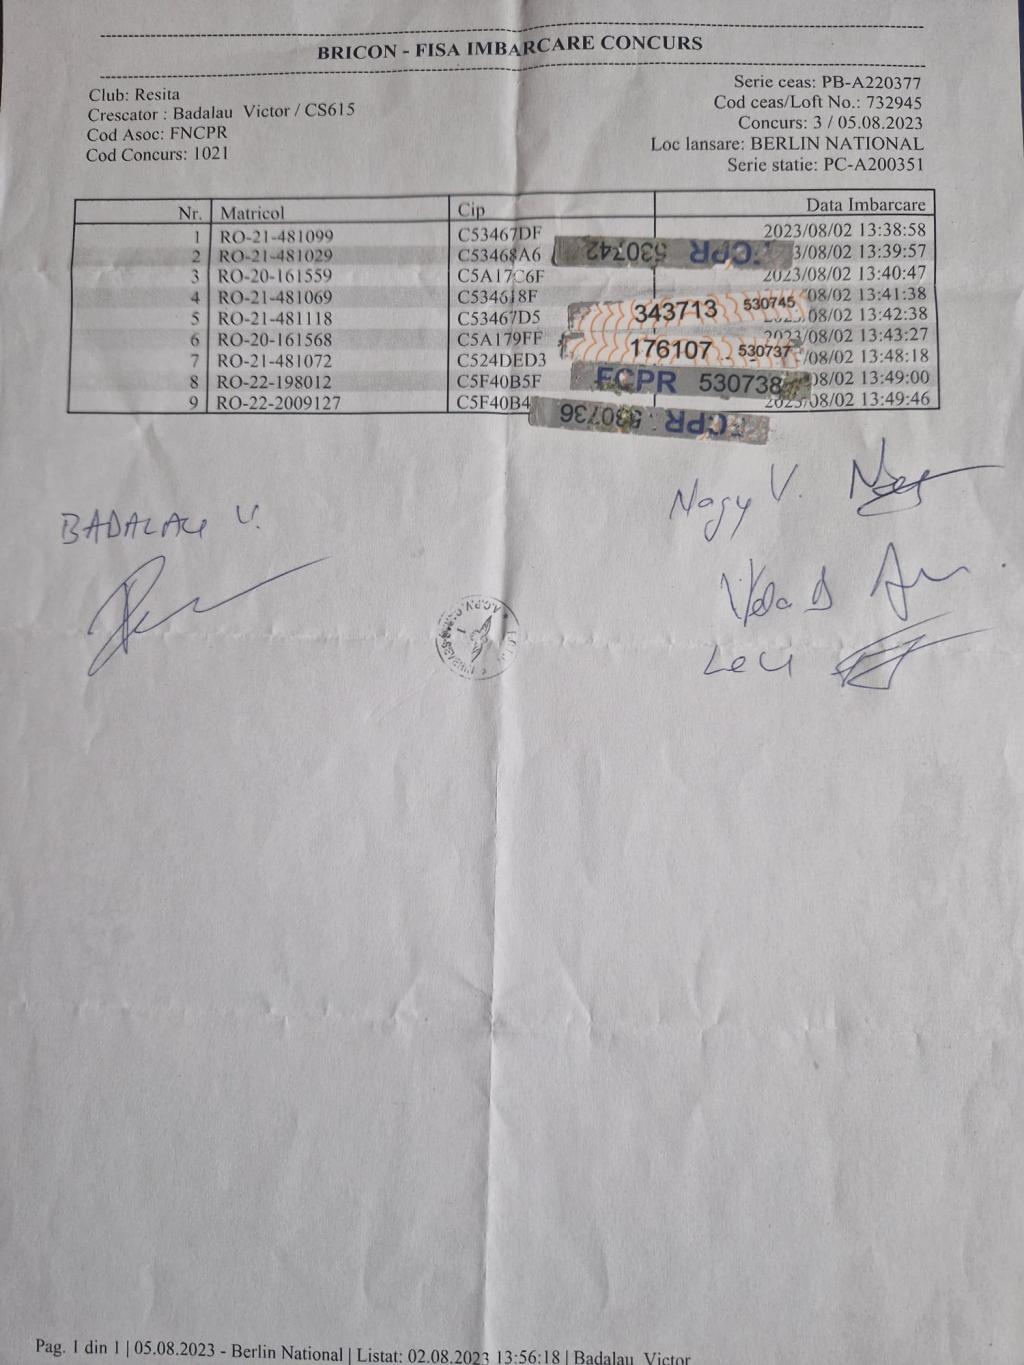 BRICON - FISA IMBARCARE CONCURS
Club: Resita
Crescator : Badalau Victor / CS615
Cod Asoc: FNCPR
Cod Concurs: 1021
Serie ceas: PB-A220377
Cod ceas/Loft No.: 732945
Concurs: 3 / 05.08.2023
Loc lansare: BERLIN NATIONAL
Serie statie: PC-A200351
Nr. Matricol Cip Data Imbarcare
1 RO-21-481099 C53467DF 2023/08/02 13:38:58
2 RO-21-481029 C53468A6 530742 FCPR 3/08/02 13:39:57
3 RO-20-161559 C5A17C6F 2023/08/02 13:40:47
4 RO-21-481069 C534618F 08/02 13:41:38
343713 530745
5 RO-21-481118 C53467D5 08/02 13:42:38
6 RO-20-161568 C5A179FF 2023/08/02 13:43:27
176107 530737
7 RO-21-481072 C524DED3 /08/02 13:48:18
8 RO-22-198012 C5F40B5F FCPR 530738 08/02 13:49:00
9 RO-22-2009127 C5F40B4 2023/08/02 13:49:46
530736 FCPR
BADALAU V.
Nagy V.
Vela D
Leu
Pag. 1 din 1 | 05.08.2023 - Berlin National | Listat: 02.08.2023 13:56:18 | Badalau Victor